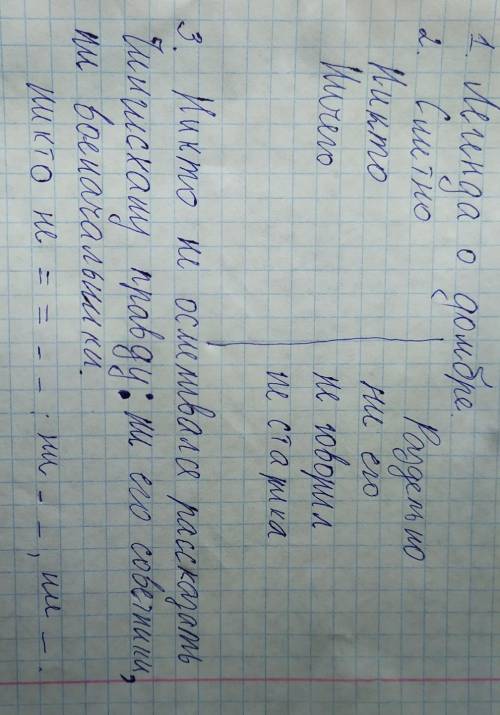 1. Легинда о домбре.
2. Слитно Раздельно
Никто ни его
Ничего не говорил
не старика
3. Никто не осмеливался рассказать
Чингисхану правду: ни его советники,
ни военачальники.
никто не = = - - : ни - - , ни - .